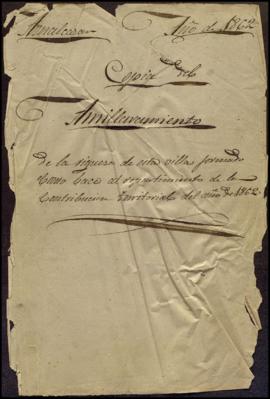 Aznalcazar Año de 1862
Copia del
Amillaramiento
De la riqueza de esta villa formado
como base al repartimiento de la
Contribucion territorial del año de 1862.